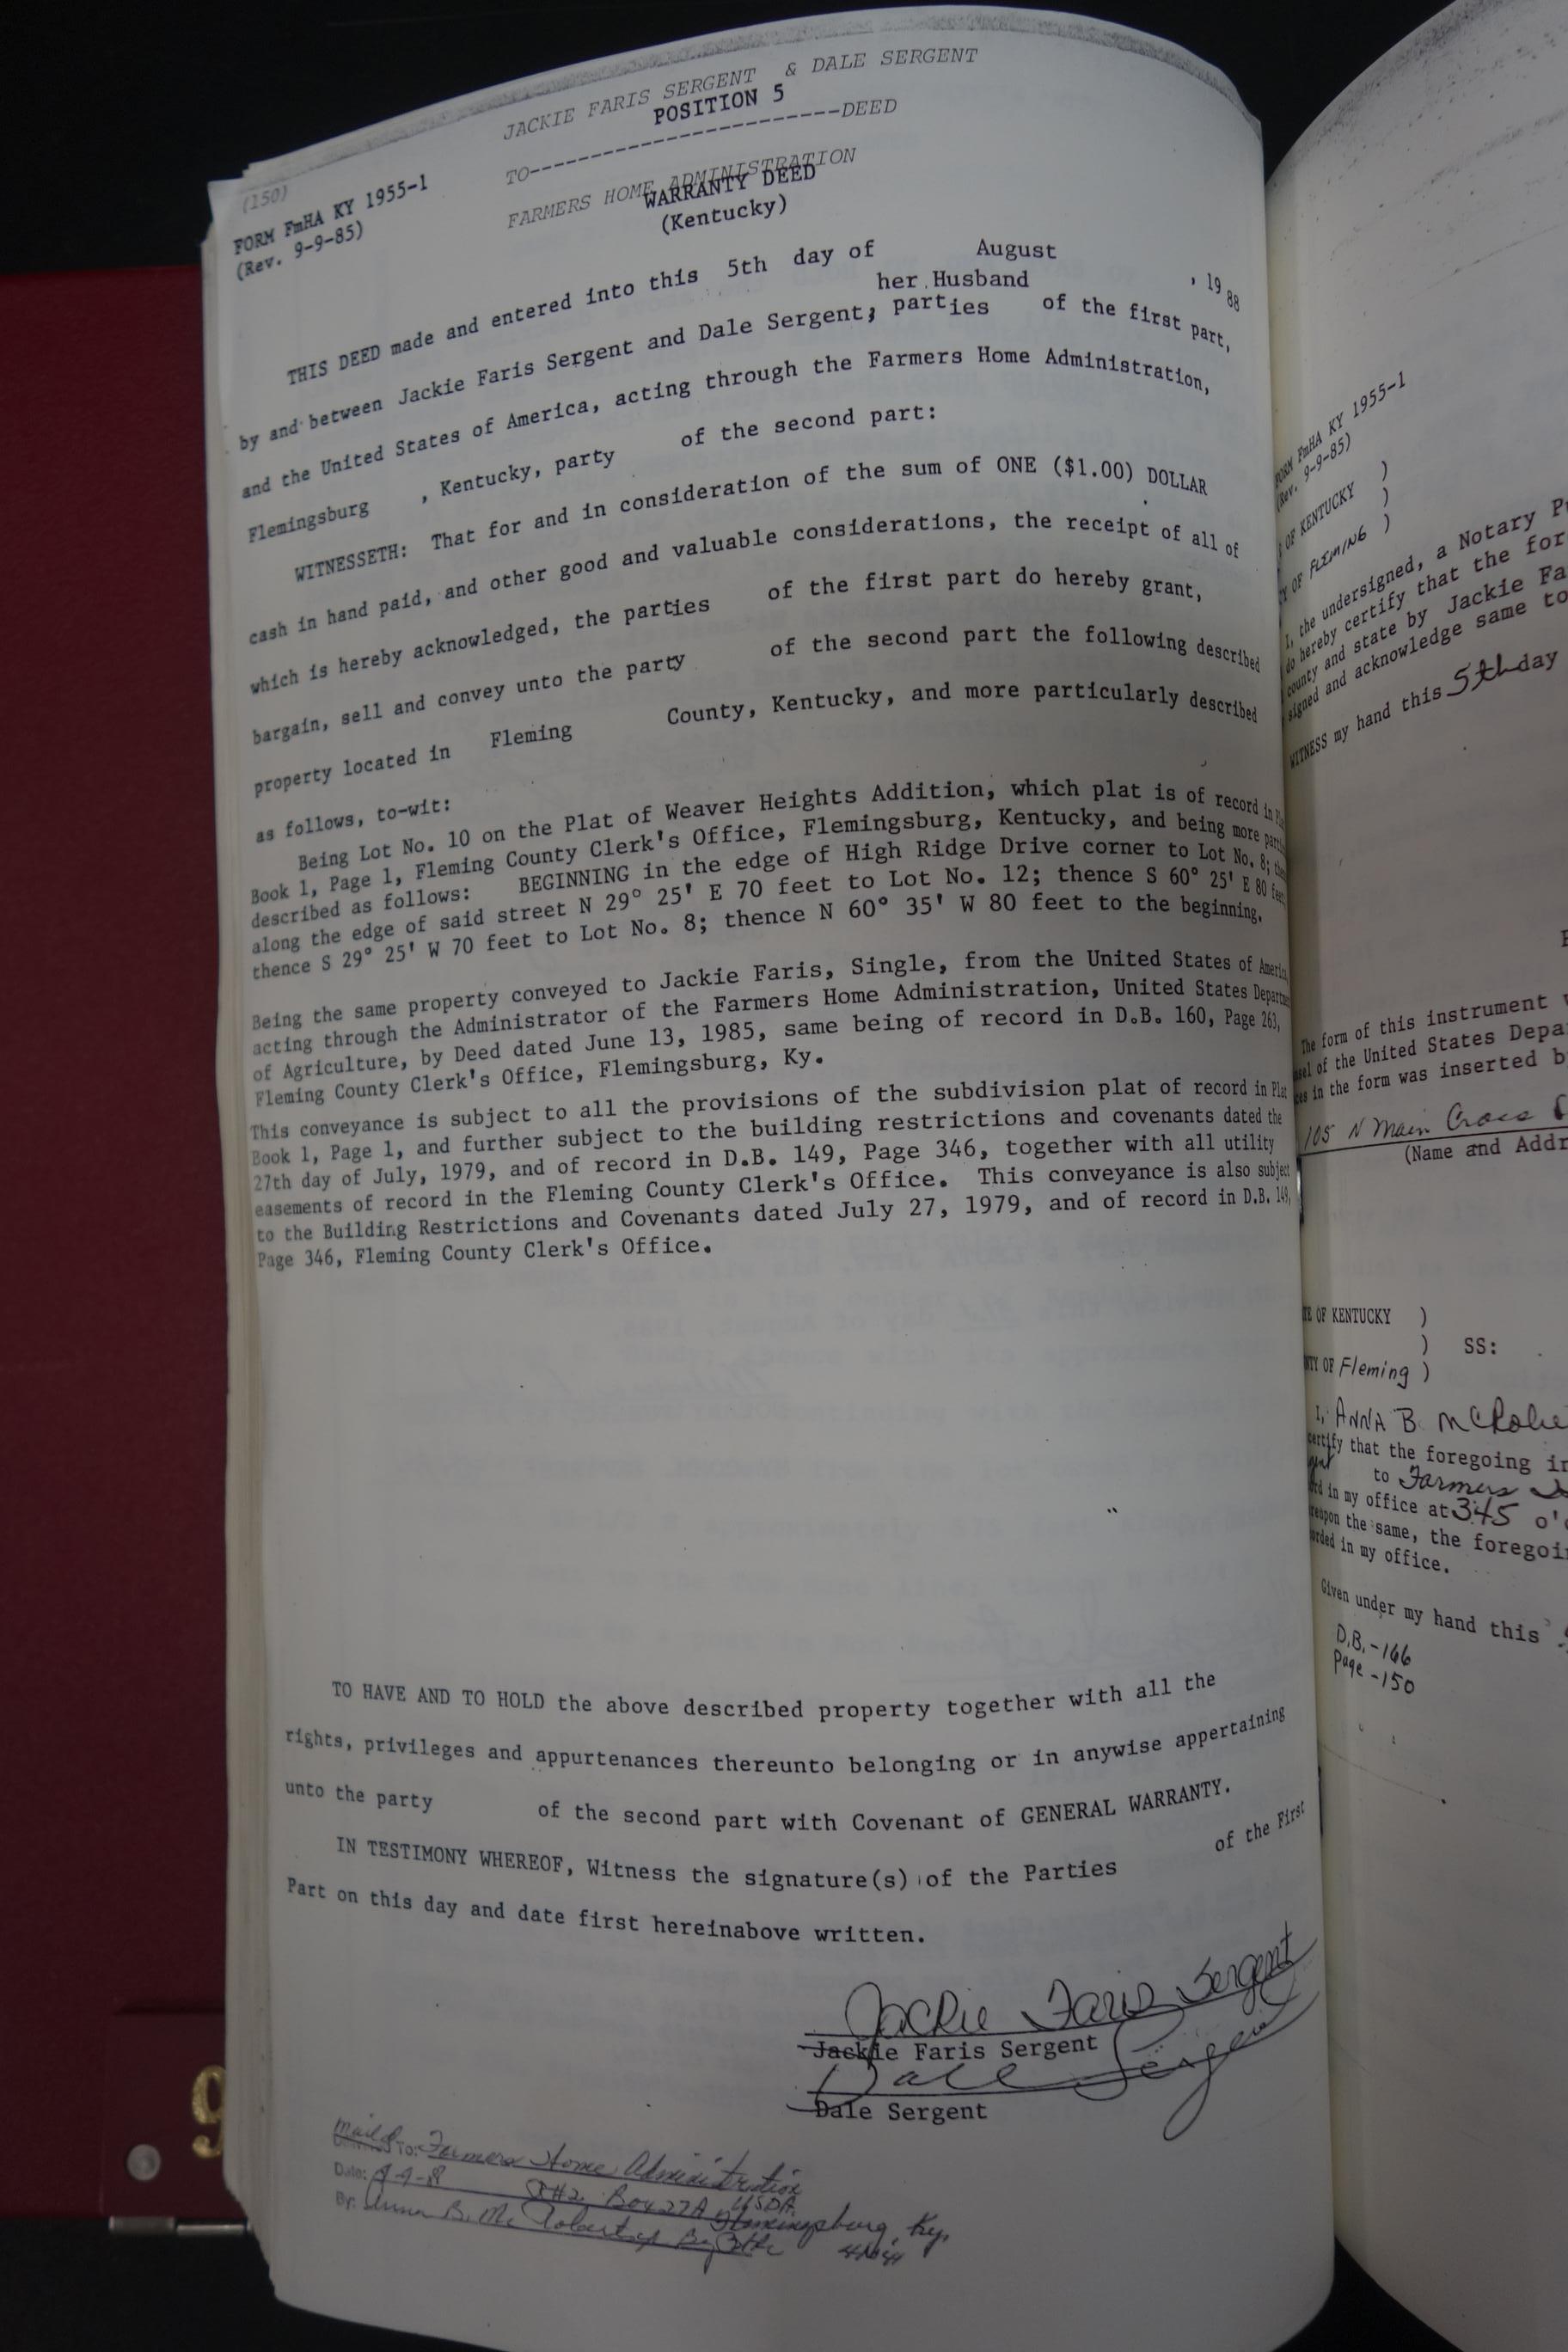 JACKIE FARIS SERGENT & DALE SERGENT
POSITION 5
TO-----------------------DEED
FARMERS HOME ADMINISTRATION
WARRANTY DEED
(Kentucky)
(150)
FORM FmHA KY 1955-1
(Rev. 9-9-85)
THIS DEED made and entered into this 5th day of August , 19 88
her Husband
by and between Jackie Faris Sergent and Dale Sergent, parties of the first part,
and the United States of America, acting through the Farmers Home Administration,
Flemingsburg , Kentucky, party of the second part:
WITNESSETH: That for and in consideration of the sum of ONE ($1.00) DOLLAR
cash in hand paid, and other good and valuable considerations, the receipt of all of
which is hereby acknowledged, the parties of the first part do hereby grant,
bargain, sell and convey unto the party of the second part the following described
property located in Fleming County, Kentucky, and more particularly described
as follows, to-wit:
Being Lot No. 10 on the Plat of Weaver Heights Addition, which plat is of record in
Book 1, Page 1, Fleming County Clerk's Office, Flemingsburg, Kentucky, and being more
described as follows: BEGINNING in the edge of High Ridge Drive corner to Lot No. 8;
along the edge of said street N 29° 25' E 70 feet to Lot No. 12; thence S 60° 25' E 80 feet
thence S 29° 25' W 70 feet to Lot No. 8; thence N 60° 35' W 80 feet to the beginning.
Being the same property conveyed to Jackie Faris, Single, from the United States of America,
acting through the Administrator of the Farmers Home Administration, United States
of Agriculture, by Deed dated June 13, 1985, same being of record in D.B. 160, Page 263,
Fleming County Clerk's Office, Flemingsburg, Ky.
This conveyance is subject to all the provisions of the subdivision plat of record in Plat
Book 1, Page 1, and further subject to the building restrictions and covenants dated the
27th day of July, 1979, and of record in D.B. 149, Page 346, together with all utility
easements of record in the Fleming County Clerk's Office. This conveyance is also subject
to the Building Restrictions and Covenants dated July 27, 1979, and of record in D.B. 149,
Page 346, Fleming County Clerk's Office.
TO HAVE AND TO HOLD the above described property together with all the
rights, privileges and appurtenances thereunto belonging or in anywise appertaining
unto the party of the second part with Covenant of GENERAL WARRANTY.
IN TESTIMONY WHEREOF, Witness the signature(s) of the Parties of the First
Part on this day and date first hereinabove written.
Jackie Faris Sergent
Jackie Faris Sergent
Dale Sergent
Dale Sergent
Mailed To: Farmers Home Administration
USDA
Date: Rt #2 Box 27A Flemingsburg, Ky.
By: Anna B. McRoberts
FORM FmHA KY 1955-1
(Rev. 9-9-85)
OF KENTUCKY )
)
OF FLEMING )
I, the undersigned, a Notary
do hereby certify that the
county and state by Jackie
signed and acknowledge same to
WITNESS my hand this 5th day
The form of this instrument
of the United States
in the form was inserted
105 N Main Cross
(Name and
OF KENTUCKY )
) SS:
OF Fleming )
I, ANNA B
certify that the foregoing
to Farmers
in my office at 3:45
the same, the
in my office.
Given under my hand this
D.B.-166
Page-150
9